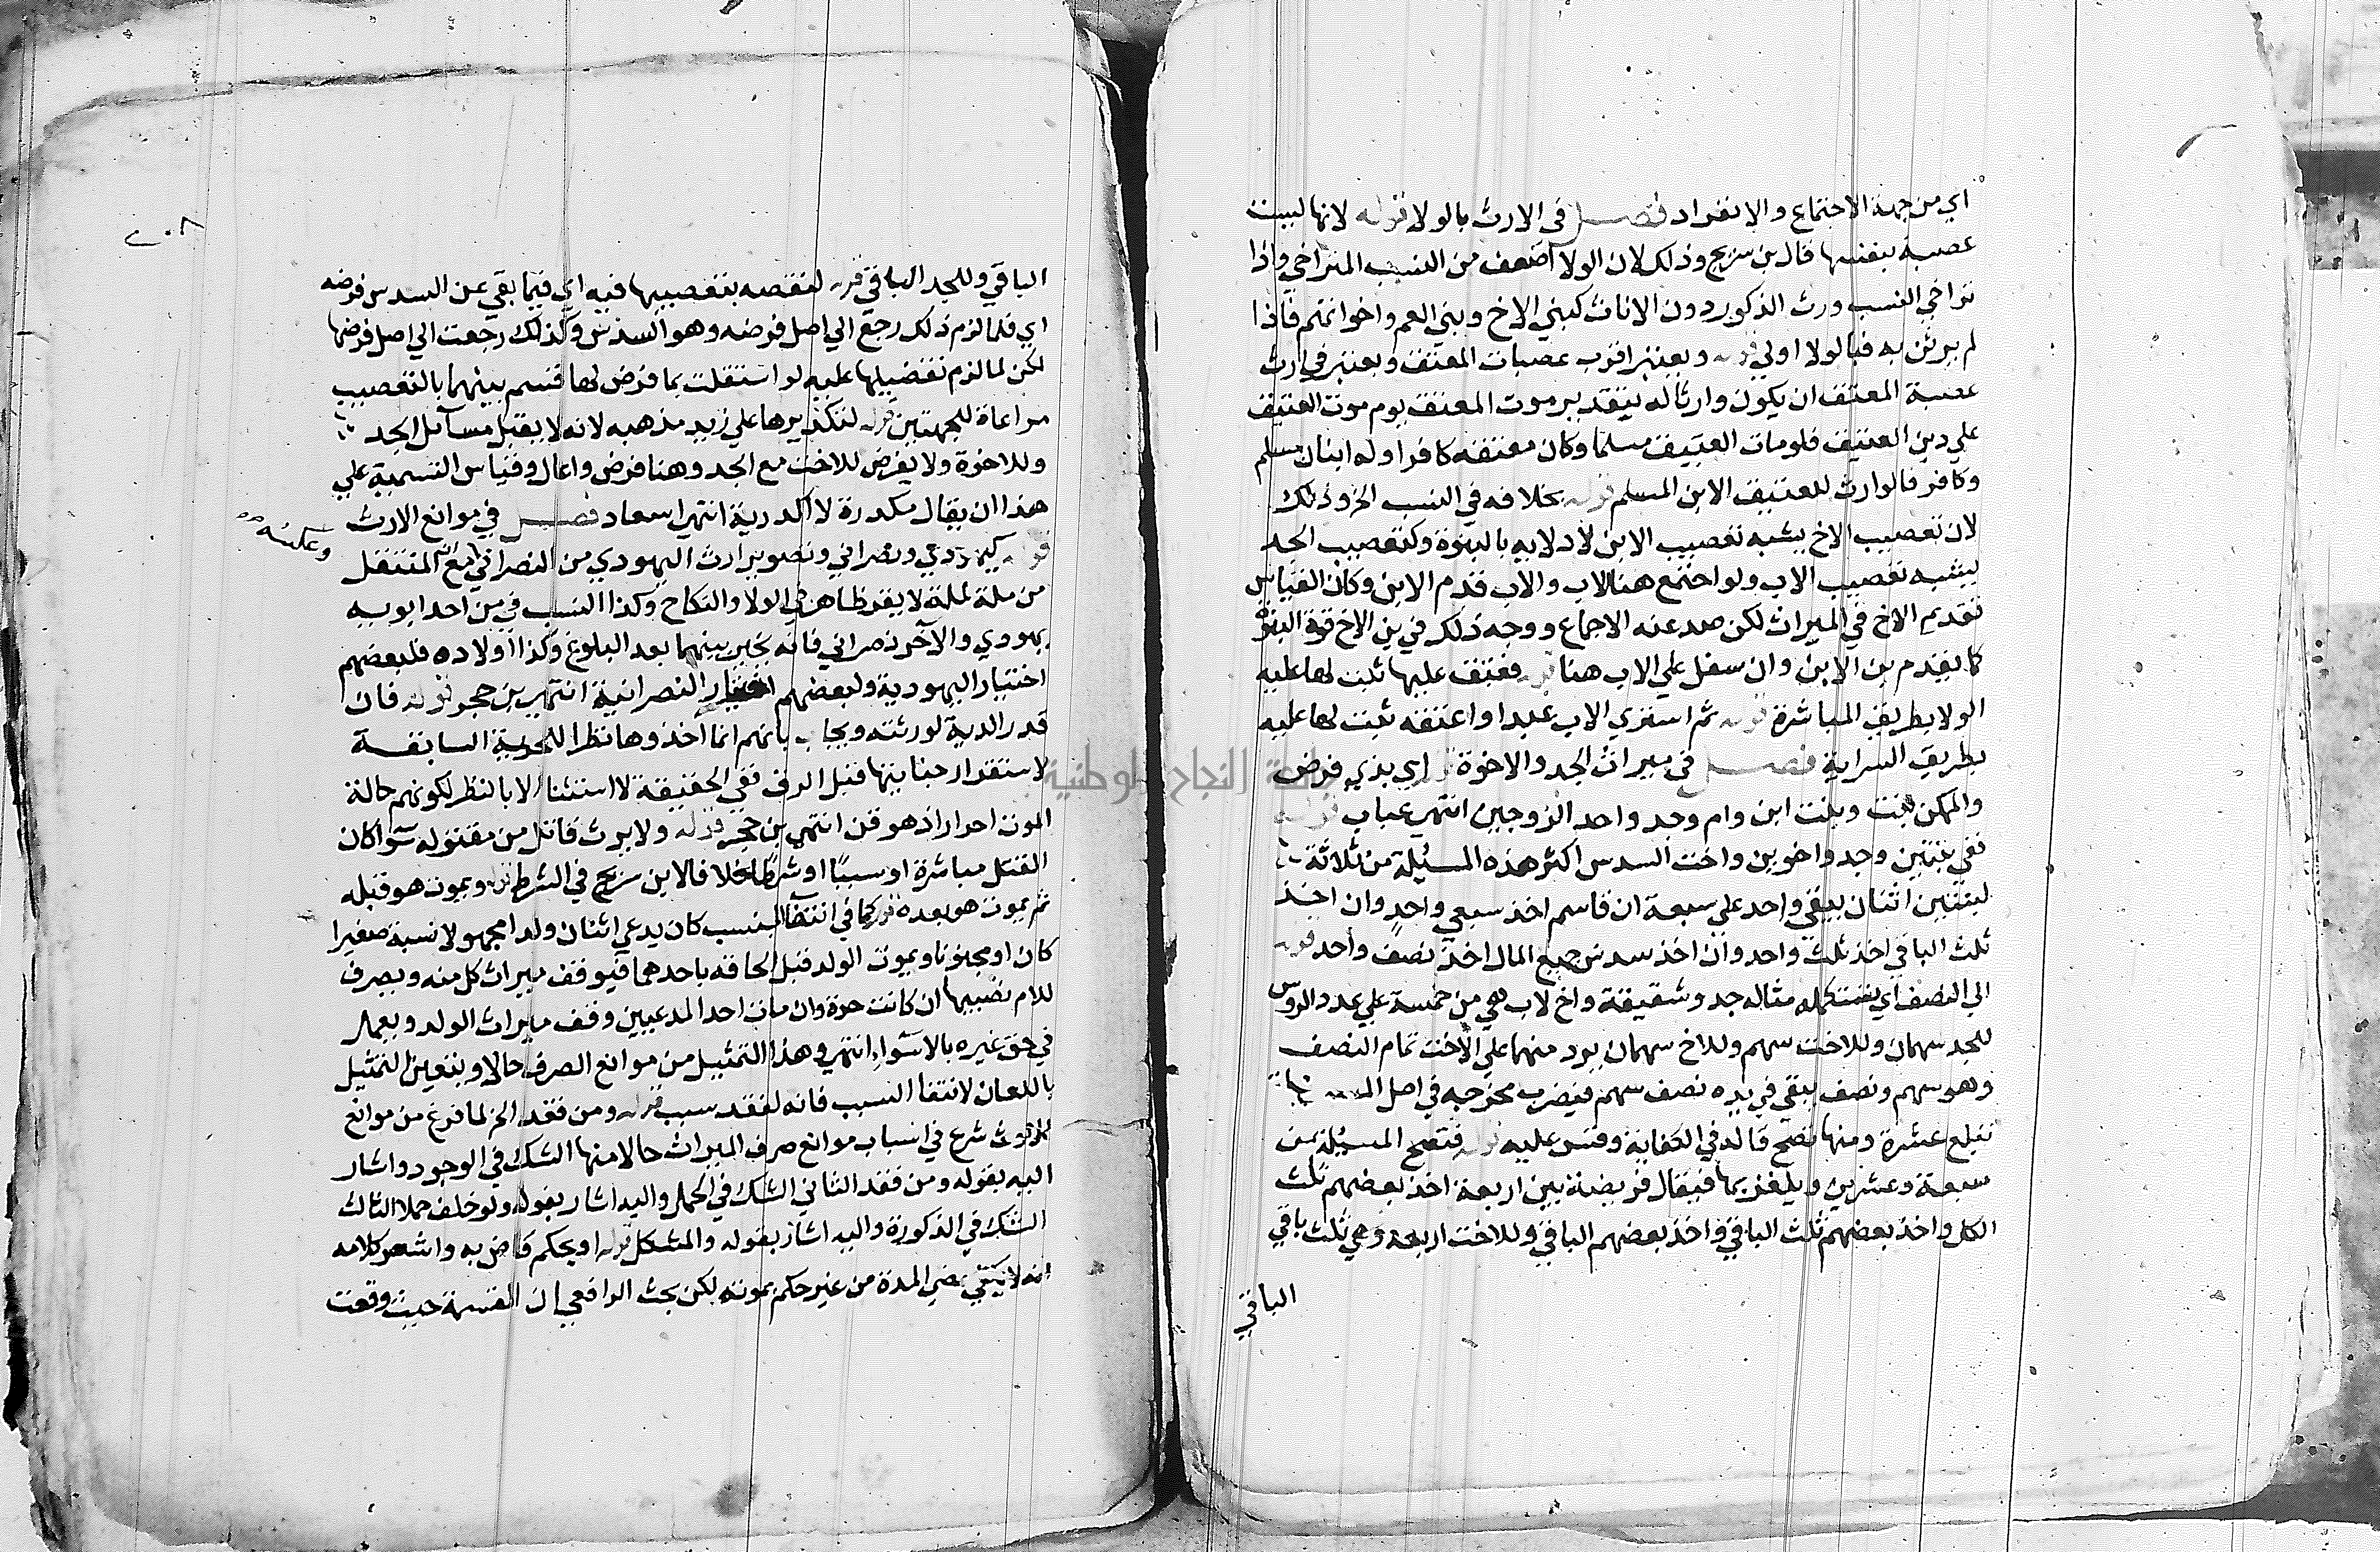 اي من جهة الاجتماع والانفراد فصل في الارث بالولا قوله لانها ليست
عصبة بنفسها قال بن سريج وذلك لان الولا اضعف من النسب المتراخي واذا
تراخي النسب ورث الذكور دون الاناث كبني الاخ وبني العم واخواتهم فاذا
لم يرثن به فبالولا اولي قوله ويعتبر اقرب عصبات المعتق ويعتبر في ارث
عصبة المعتق ان يكون وارثا له بتقدير موت المعتق يوم موت العتيق
علي دين العتيق فلو مات العتيق مسلما وكان معتقه كافرا وله ابنان مسلم
وكافر فالوارث للعتيق الابن المسلم قوله بخلافه في النسب الخ وذلك
لان تعصيب الاخ يشبه تعصيب الابن لادلايه بالبنوة وكتعصيب الجد
يشبه تعصيب الاب ولو اجتمع هنا الاب والابن قدم الابن وكان القياس
تقديم الاخ في الميراث لكن صد عنه الاجماع ووجه ذلك في بن الاخ قوة البنوة
كما يقدم بن الابن وان سفل علي الاب هنا قوله فعتق عليها ثبت لها عليه
الولا بطريق المباشرة قوله ثم اشتري الاب عبدا واعتقه ثبت لها عليه
بطريق السراية فصل في ميراث الجد والاخوة اي بذي فرض
والممكن بنت وبنت ابن وام وجد واحد الزوجين انتهي عباب قوله
ففي بنتين وجد واخوين واخت السدس اكثر هذه المسئلة من ثلاثة
لبنتين اثنان يبقي واحد علي سبعة ان قاسم اخذ سبعي واحد وان اخذ
ثلث الباقي اخذ ثلث واحد وان اخذ سدس جميع المال اخذ نصف واحد قوله
الي النصف اي يستكمله مثاله جد وشقيقة واخ لاب هي من خمسة علي عدد الروس
للجد سهمان وللاخت سهم وللاخ سهمان يرد منهما علي الاخت تمام النصف
وهو سهم ونصف يبقي في يده نصف سهم فيضرب مخرجه في اصل
تبلغ عشرة ومنها تصح قاله في الكفاية وقس عليه قوله فتصح المسئلة من
سبعة وعشرين ويلغز بها فيقال فريضة بين اربعة اخذ بعضهم ثلث
الكل واخذ بعضهم ثلث الباقي واخذ بعضهم الباقي وللاخت اربعة وهي ثلث باقي
الباقي
٢٠٨
الباقي وللجد الباقي قوله لنقصه بتعصيبها فيه اي فيما بقي عن السدس فرضه
اي فلما لزم ذلك رجع الي اصل فرضه وهو السدس وكذلك رجعت الي اصل فرضها
لكن لما لزم تفضيلها عليه لو استقلت بما فرض لها قسم بينهما بالتعصيب
مراعاة للجهتين قوله لتكديرها علي زيد مذهبه لانه لا يقبل مسآئل الجد
وللاخوة ولا يفرض للاخت مع الجد وهنا فرض واعال وقياس التسمية علي
هذا ان يقال مكدرة لا اكدرية انتهي اسعاد فصل في موانع الارث
قوله كيهودي ونصراني وتصوير ارث اليهودي من النصراني مع ان المنتقل
وعكسه
من ملة لملة لا يقر ظاهر في الولا والنكاح وكذا النسب في من احد ابويه
يهودي والآخر نصراني فانه يخير بينهما بعد البلوغ وكذا اولاده فلبعضهم
اختيار اليهودية ولبعضهم اختيار النصرانية انتهي بن حجر قوله فان
قدر الدية لورثته ويجاب بانهم انما اخذوها نظرا للحرية السابقة
لاستقرار جنايتها قبل الرق ففي الحقيقة لا استثنا الا بالنظر لكونهم حالة
الموت احرارا اذ هو قن انتهي بن حجر قوله ولا يرث قاتل من مقتوله سوآ اكان
القتل مباشرة او سببًا او شرطا خلافا لابن سريج في الشرط قوله ويموت هو قبله
ثم يموت هو بعده قوله كما في انتفآ النسب كان يدعي اثنان ولدا مجهولا نسبه صغيرا
كان او مجنونا ويموت الولد قبل الحاقه باحدهما فيوقف ميراث كل منه ويصرف
للام نصيبها ان كانت حرة وان مات احد المدعيين وقف ميراث الولد ويعمل
في حق غيره بالاسوآء انتهي وهذا التمثيل من موانع الصرف حالا ويتعين التمثيل
باللعان لانتفا النسب فانه لفقد سبب قوله ومن فقد الخ لما فرغ من موانع
الارث شرع في اسباب موانع صرف الميراث حالا منها الشك في الوجود واشار
اليه بقوله ومن فقد الثاني الشك في الحمل واليه اشار بقوله ولو خلف حملا الثالث
الشك في الذكورة واليه اشار بقوله والمشكل قوله او يحكم قاض به واشعر كلامه
انه لا يكفي مضي المدة من غير حكم بموته لكن بحث الرافعي ان القسمة حيث وقعت
جامعة النجاح الوطنية